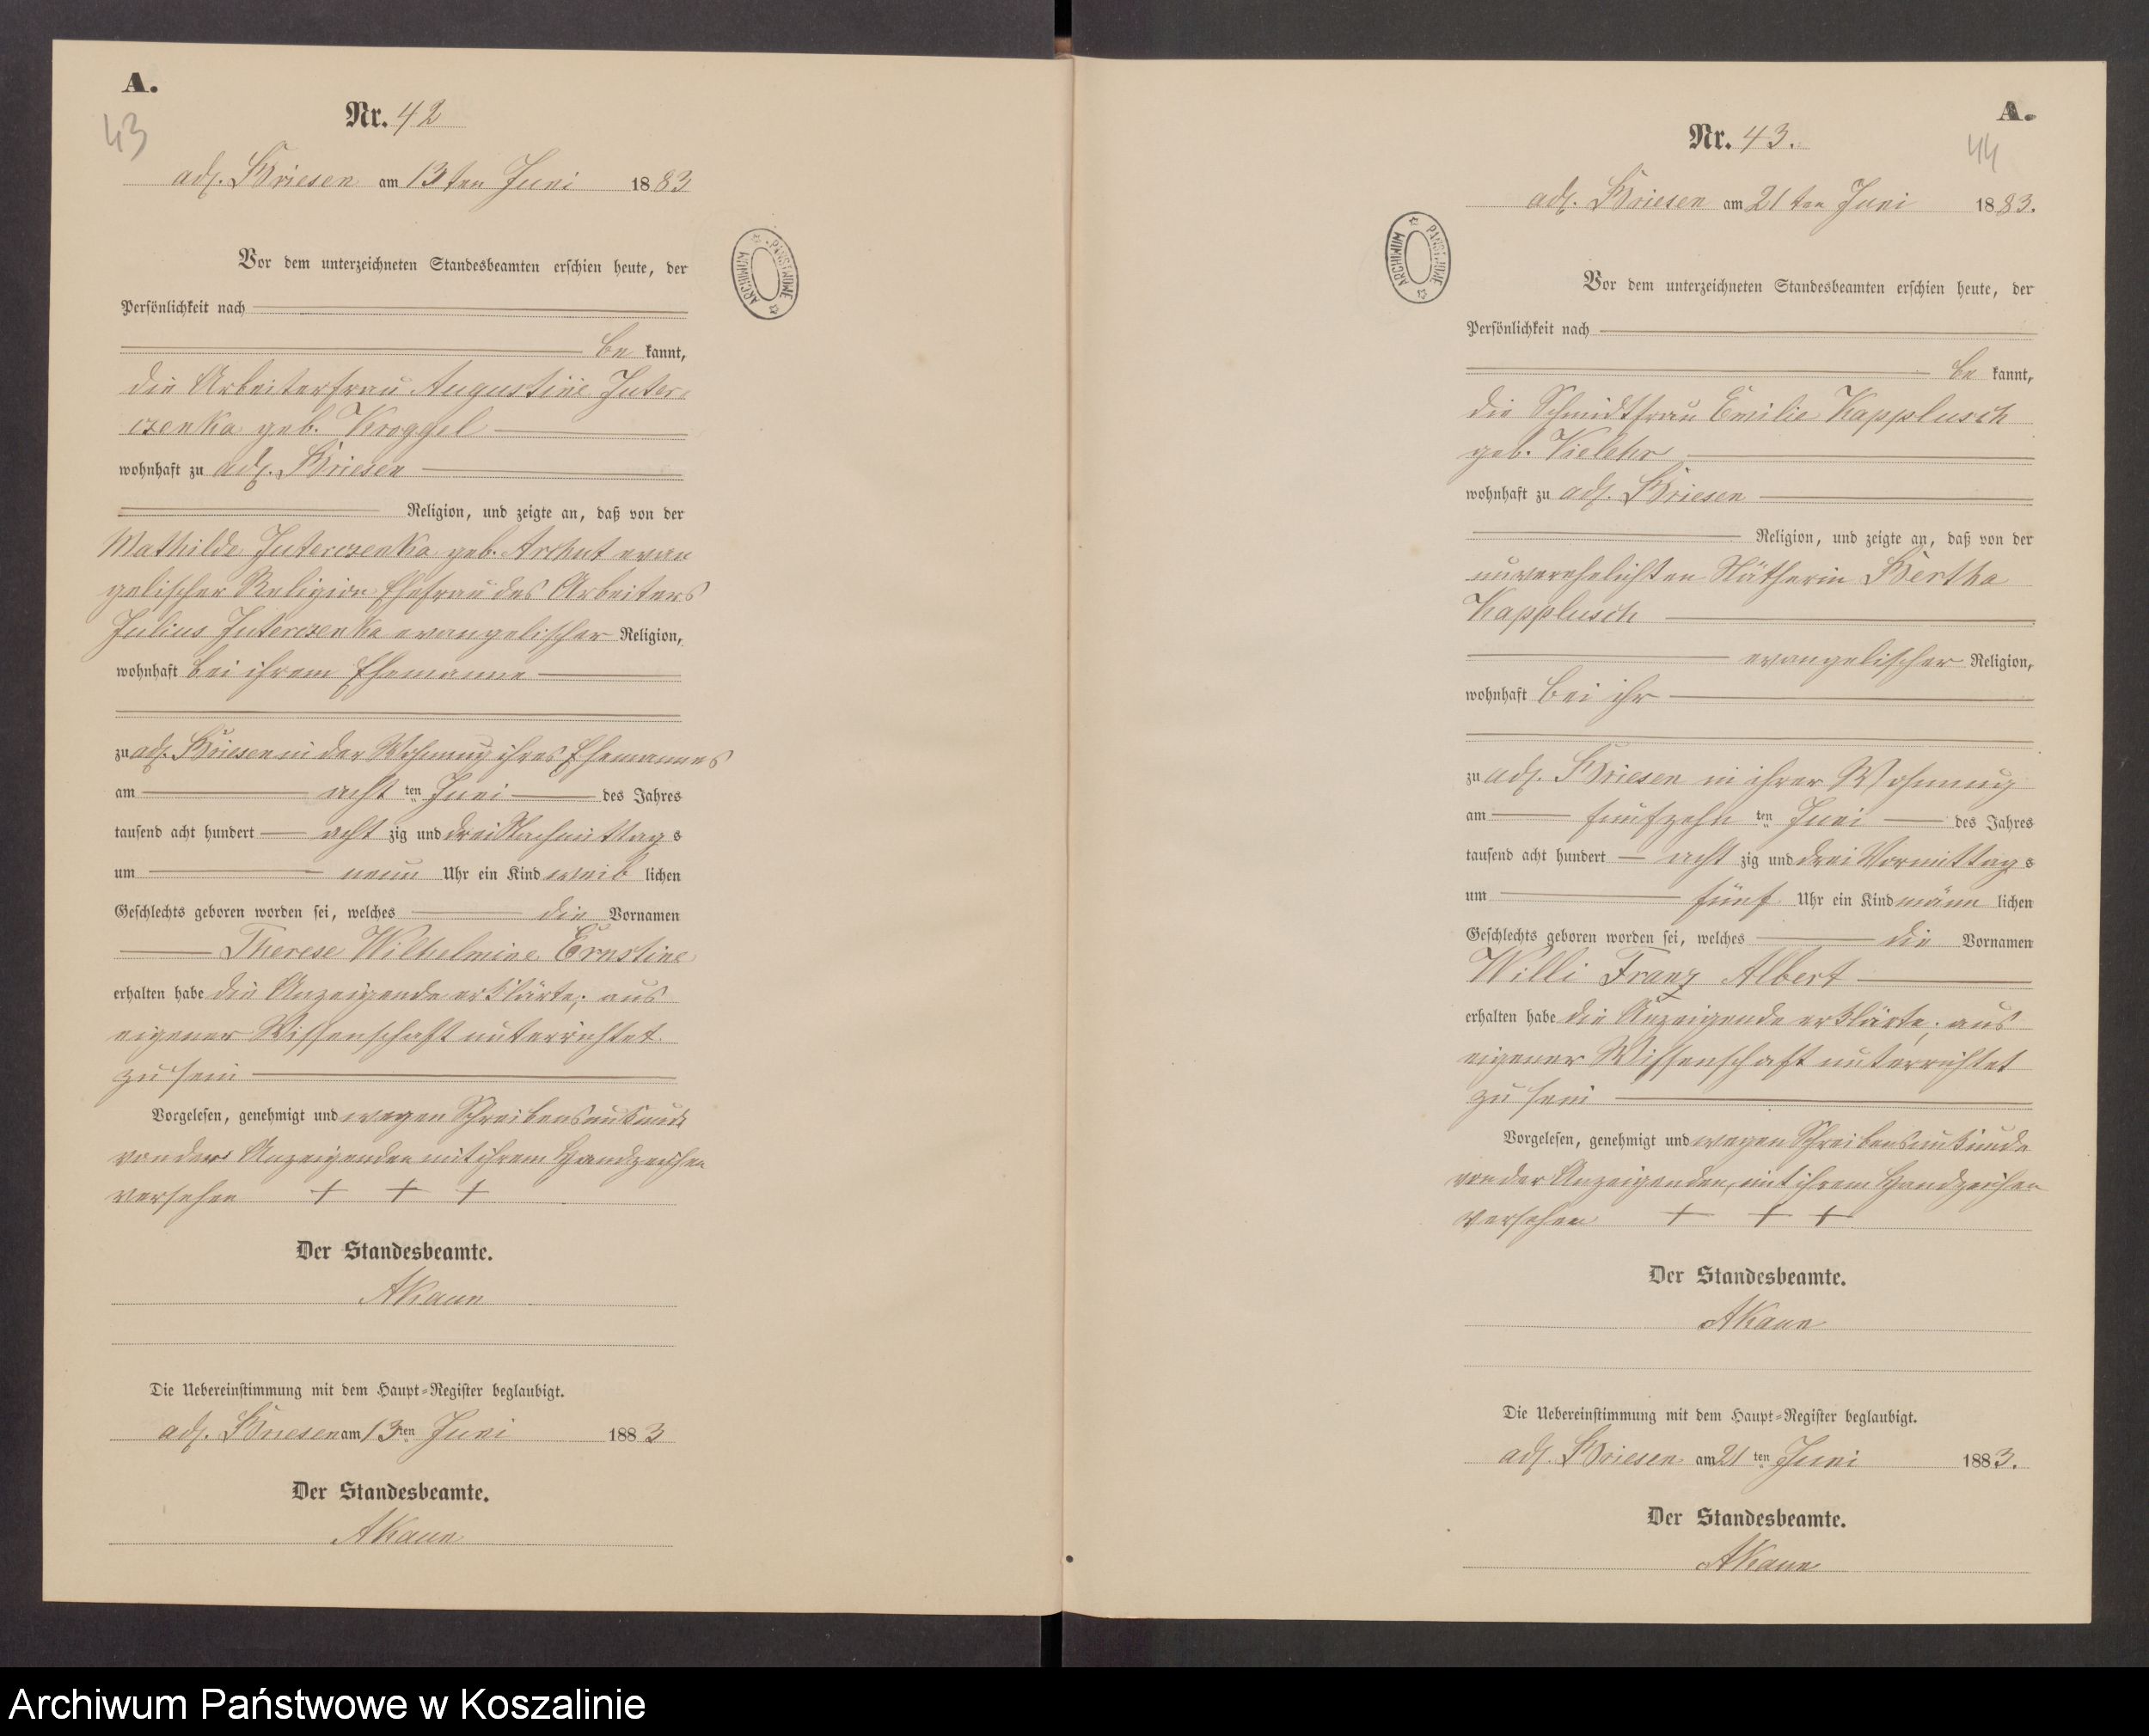 A.
43
Nr. 42
adl. Briesen am 13ten Juni 1883
Vor dem unterzeichneten Standesbeamten erschien heute, der
Persönlichkeit nach
be kannt,
die Arbeiterfrau Augustine Juter-
czenka geb. Kroggel
wohnhaft zu adl. Briesen
Religion, und zeigte an, daß von der
Mathilde Juterczenka geb. evan
gelischer Religion Ehefrau des Arbeiters
Julius Juterczenka evangelischer Religion,
wohnhaft bei ihrem Ehemanne
zu adl. Briesen in der Wohnung ihres Ehemannes
am acht ten Juni des Jahres
tausend acht hundert acht zig und drei Nachmittags
um neun Uhr ein Kind weib lichen
Geschlechts geboren worden sei, welches die Vornamen
Therese Wilhelmine Ernstine
erhalten habe die Anzeigende erklärte; aus
eigener Wissenschaft unterrichtet
zu sein
Vorgelesen, genehmigt und wegen Schreibensunkunde
von der Anzeigenden mit ihrem Handzeichen
versehen + + +
Der Standesbeamte.
AKaun
Die Uebereinstimmung mit dem Haupt=Register beglaubigt.
adl. Briesen am 13ten Juni 1883
Der Standesbeamte.
AKaun
ARCHIWUM PAŃSTWOWE
A.
44
Nr. 43.
adl. Briesen am 21ten Juni 1883.
Vor dem unterzeichneten Standesbeamten erschien heute, der
Persönlichkeit nach
be kannt,
die Schmidtfrau Emilie Kapplusch
geb. Vielehr
wohnhaft zu adl. Briesen
Religion, und zeigte an, daß von der
unverehelichten Nätherin Bertha
Kapplusch
evangelischer Religion,
wohnhaft bei ihr
zu adl. Briesen in ihrer Wohnung
am funfzehn ten Juni des Jahres
tausend acht hundert acht zig und drei Vormittags
um fünf Uhr ein Kind männ lichen
Geschlechts geboren worden sei, welches die Vornamen
Willi Franz Albert
erhalten habe die Anzeigende erklärte; aus
eigener Wissenschaft unterrichtet
zu sein
Vorgelesen, genehmigt und wegen Schreibensunkunde
von der Anzeigenden, mit ihrem Handzeichen
versehen + + +
Der Standesbeamte.
AKaun
Die Uebereinstimmung mit dem Haupt=Register beglaubigt.
adl. Briesen am 21 ten Juni 1883.
Der Standesbeamte.
AKaun
ARCHIWUM PAŃSTWOWE
Archiwum Państwowe w Koszalinie